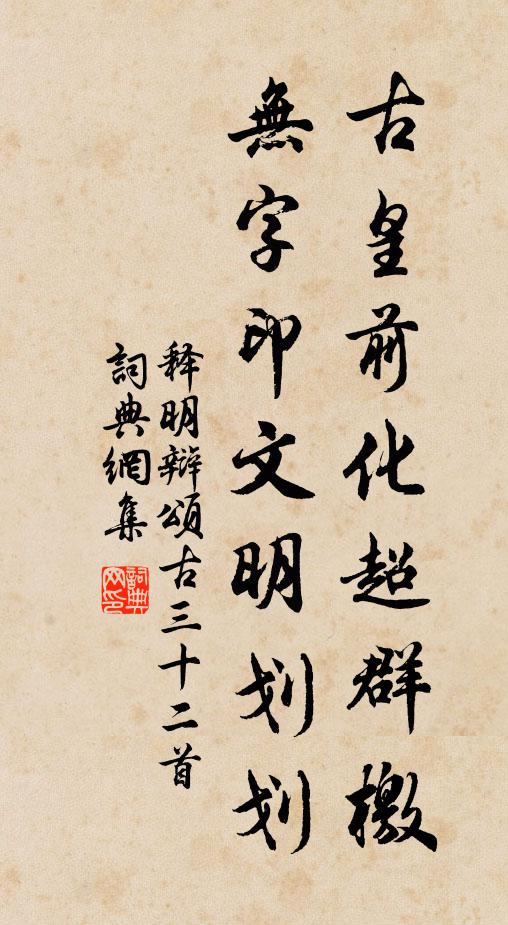 古皇前化超群檄
無字印文明划划
释明辩頌古三十二首
詞典網集
詞典網印